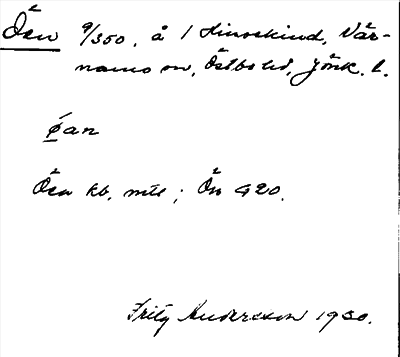 Ån 9/350, å / Hinsekind, Vär-
namo sn, Östbo hd, Jönk. l.
øan
Åen kb, mtl ; Ån G20.
Fritz Andersson 1930.